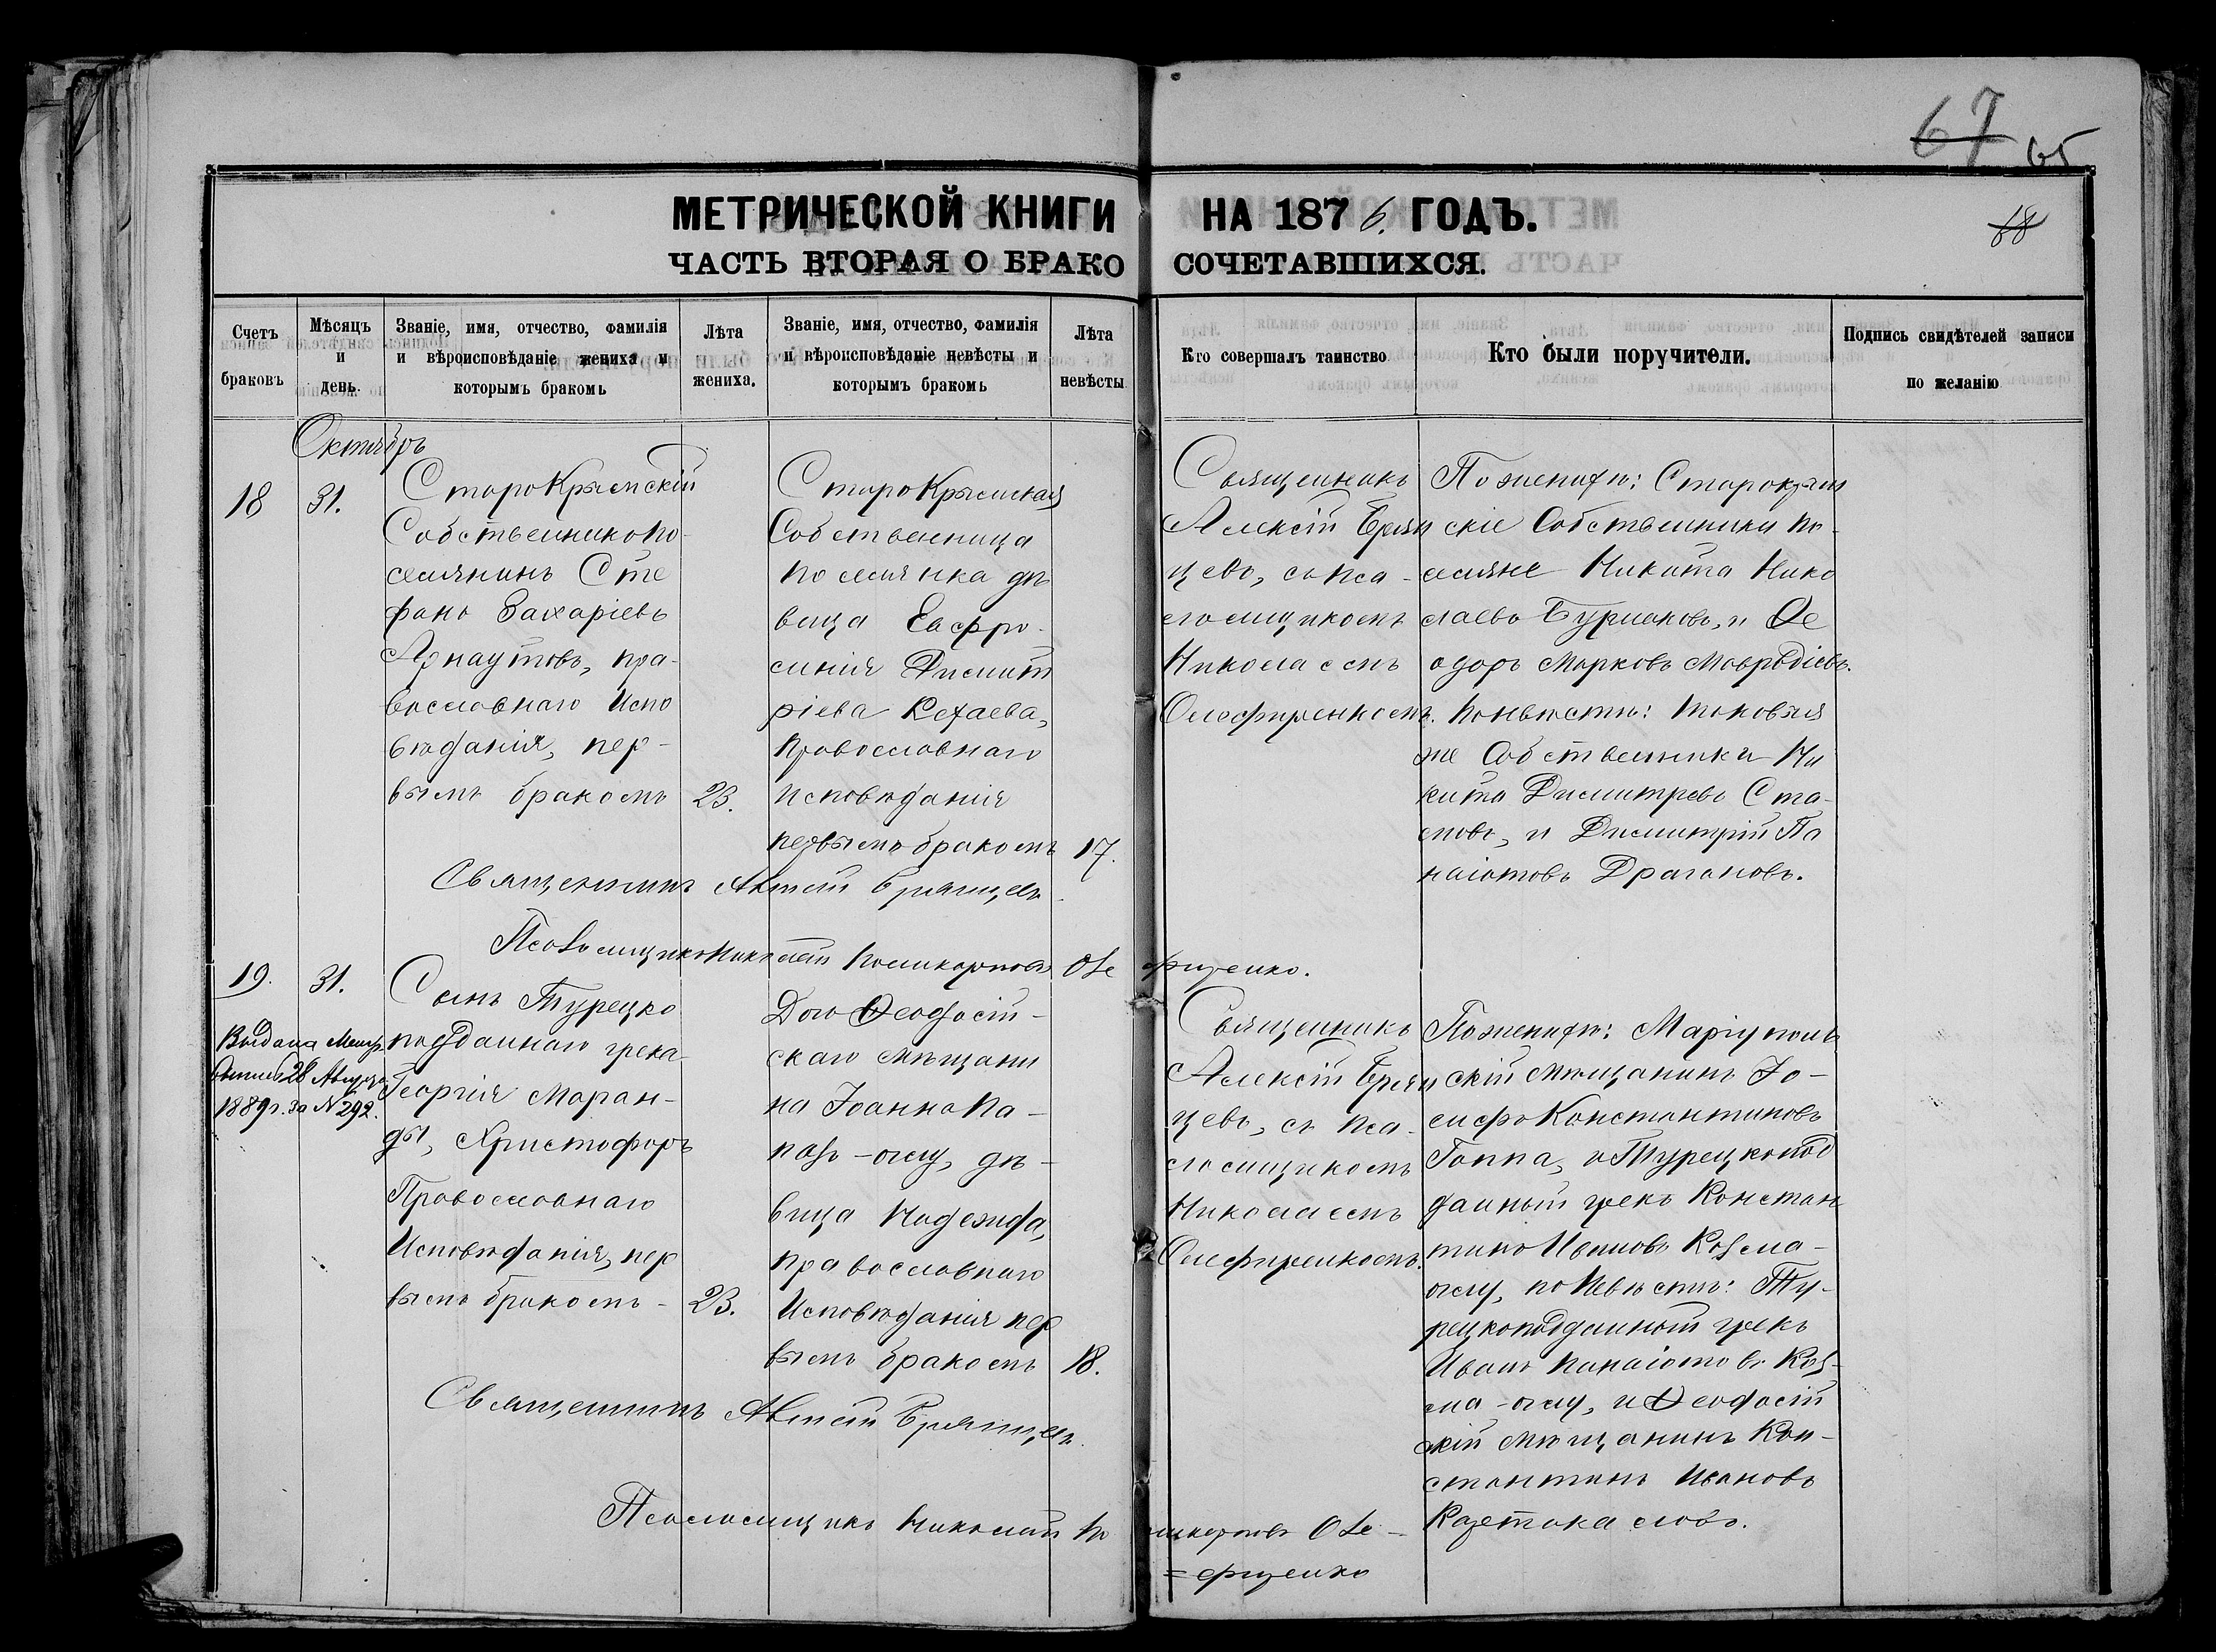 67 65
МЕТРИЧЕСКОЙ КНИГИ НА 1876. ГОДЪ.
68
ЧАСТЬ ВТОРАЯ О БРАКО СОЧЕТАВШИХСЯ.
Счетъ браковъ
Мѣсяцъ и день.
Званіе, имя, отчество, фамилія
и вѣроисповѣданіе жениха и
которымъ бракомъ
Лѣта жениха.
Званіе, имя, отчество, фамилія
и вѣроисповѣданіе невѣсты и
которымъ бракомъ
Лѣта невѣсты
Кто совершалъ таинство
Кто были поручители.
Подпись свидѣтелей записи
по желанію
Октябрь
18
31.
СтароКрымскій
Собственникъ по-
селянинъ Сте
фанъ Захаріевъ
Арнаутовъ, пра-
вославнаго Испо
вѣданія, пер-
вымъ бракомъ
23.
СтароКрымская
Собственница
поселянка дѣ
вица Евфро-
синія Димит
ріева Кефаева,
православнаго
исповѣданія
первымъ бракомъ
17.
Священникъ
Алексій Брян
цевъ, съ пса-
ломщикомъ
Николаемъ
Олефиренкомъ.
По женихѣ: Старокрым
скіе Собственники по-
селяне Никита Нико
лаевъ Бурлаковъ, и Ѳе
одоръ Марковъ Мавродіевъ.
По невѣстѣ: таковыя
же Собственники Ни
кита Димитревъ Ста-
мовъ, и Димитрій Па
наіотовъ Драгановъ.
Священникъ Алексій Брянцевъ.
Псаломщикъ Николай Поликарповъ Оле фиренко.
19.
31.
Выдана Метр.
выпись 28 Августа
1889 г. за № 292.
Сынъ Турецко
подданнаго грека
Георгія Маран-
ды, Христофоръ
Православнаго
Исповѣданія, пер
вымъ бракомъ-
23.
Дочь Ѳеодосій-
скаго мѣщани
на Іоанна Па-
пазъ-оглу, дѣ-
вица Надежда,
православнаго
Исповѣданія пер
вымъ бракомъ
18.
Священникъ
Алексій Брян
цевъ, съ пса-
ломщикомъ
Николаемъ
Олефиренкомъ.
По женихѣ: Маріуполь
скій мѣщанинъ Іо-
сифъ Константиновъ
Гоппа, и Турецкопод
данный грекъ Констан
тинъ Ивановъ Козма-
оглу, по Невѣстѣ: Ту-
рецкоподданный грекъ
Иванъ Панаіотовъ Коз-
ма-оглу, и Ѳеодосій
скій мѣщанинъ Кон-
стантинъ Ивановъ
Священникъ Алексій Брянцевъ.
Псаломщикъ Николай По ликарповъ Оле-
=фиренко